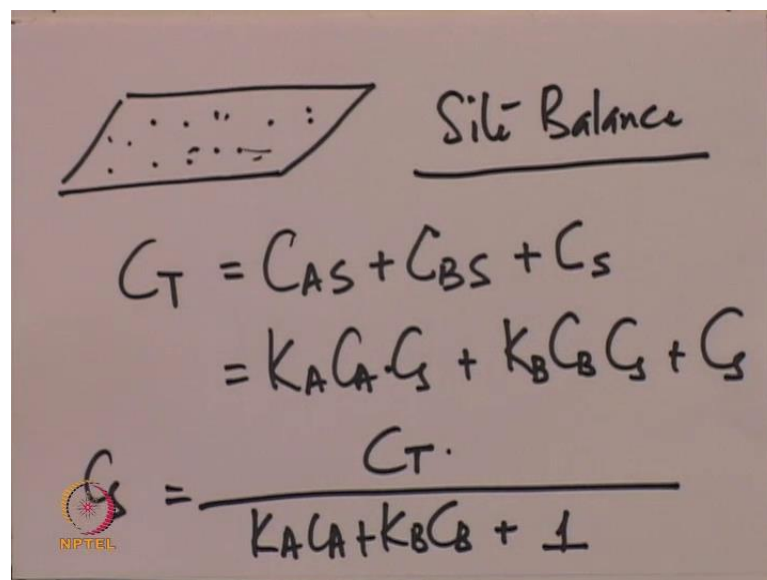 Site Balance
C_T = C_AS + C_BS + C_S
= K_A C_A · C_S + K_B C_B C_S + C_S
C_S = C_T · / K_A C_A + K_B C_B + 1
NPTEL